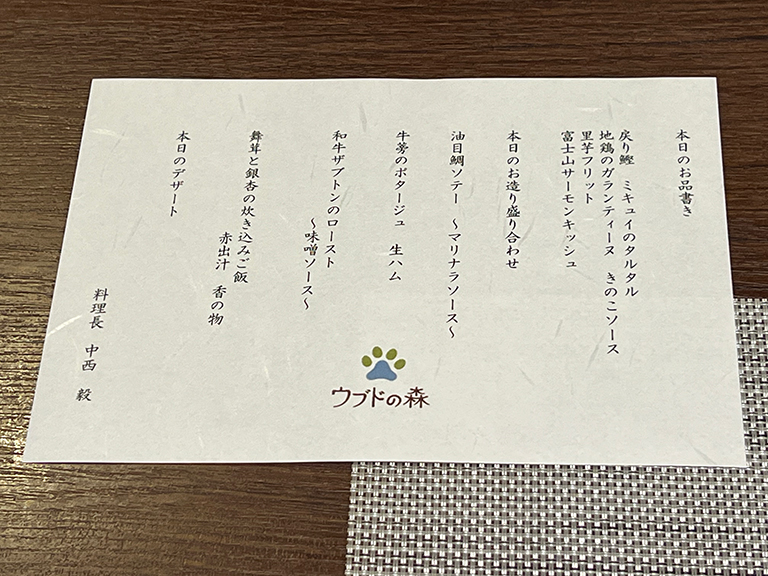 本日のお品書き
戻り鰹　ミキュイのタルタル
地鶏のガランティーヌ　きのこソース
里芋フリット
富士山サーモンキッシュ
本日のお造り盛り合わせ
油目鯛ソテー　～マリナラソース～
牛蒡のポタージュ　生ハム
和牛ザブトンのロースト
～味噌ソース～
舞茸と銀杏の炊き込みご飯
赤出汁　香の物
本日のデザート
料理長　中西　毅
ウブドの森